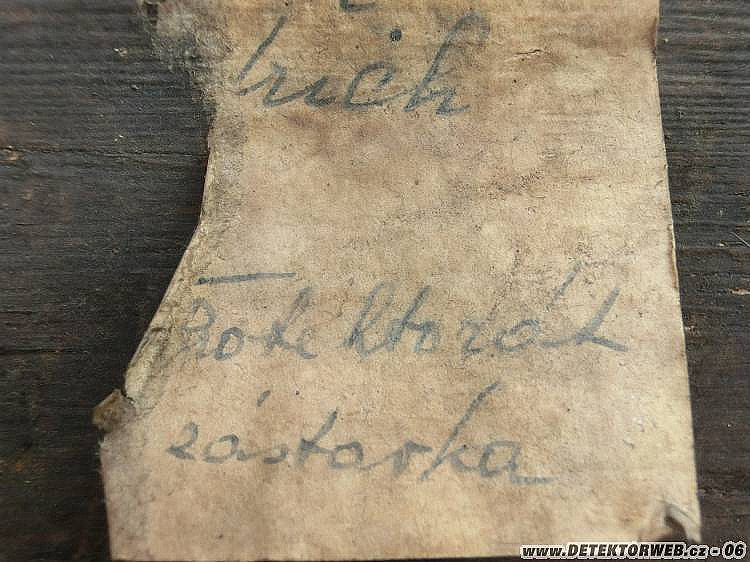 rich
Protektorát
zástavka
www.DETEKTORWEB.cz - 06